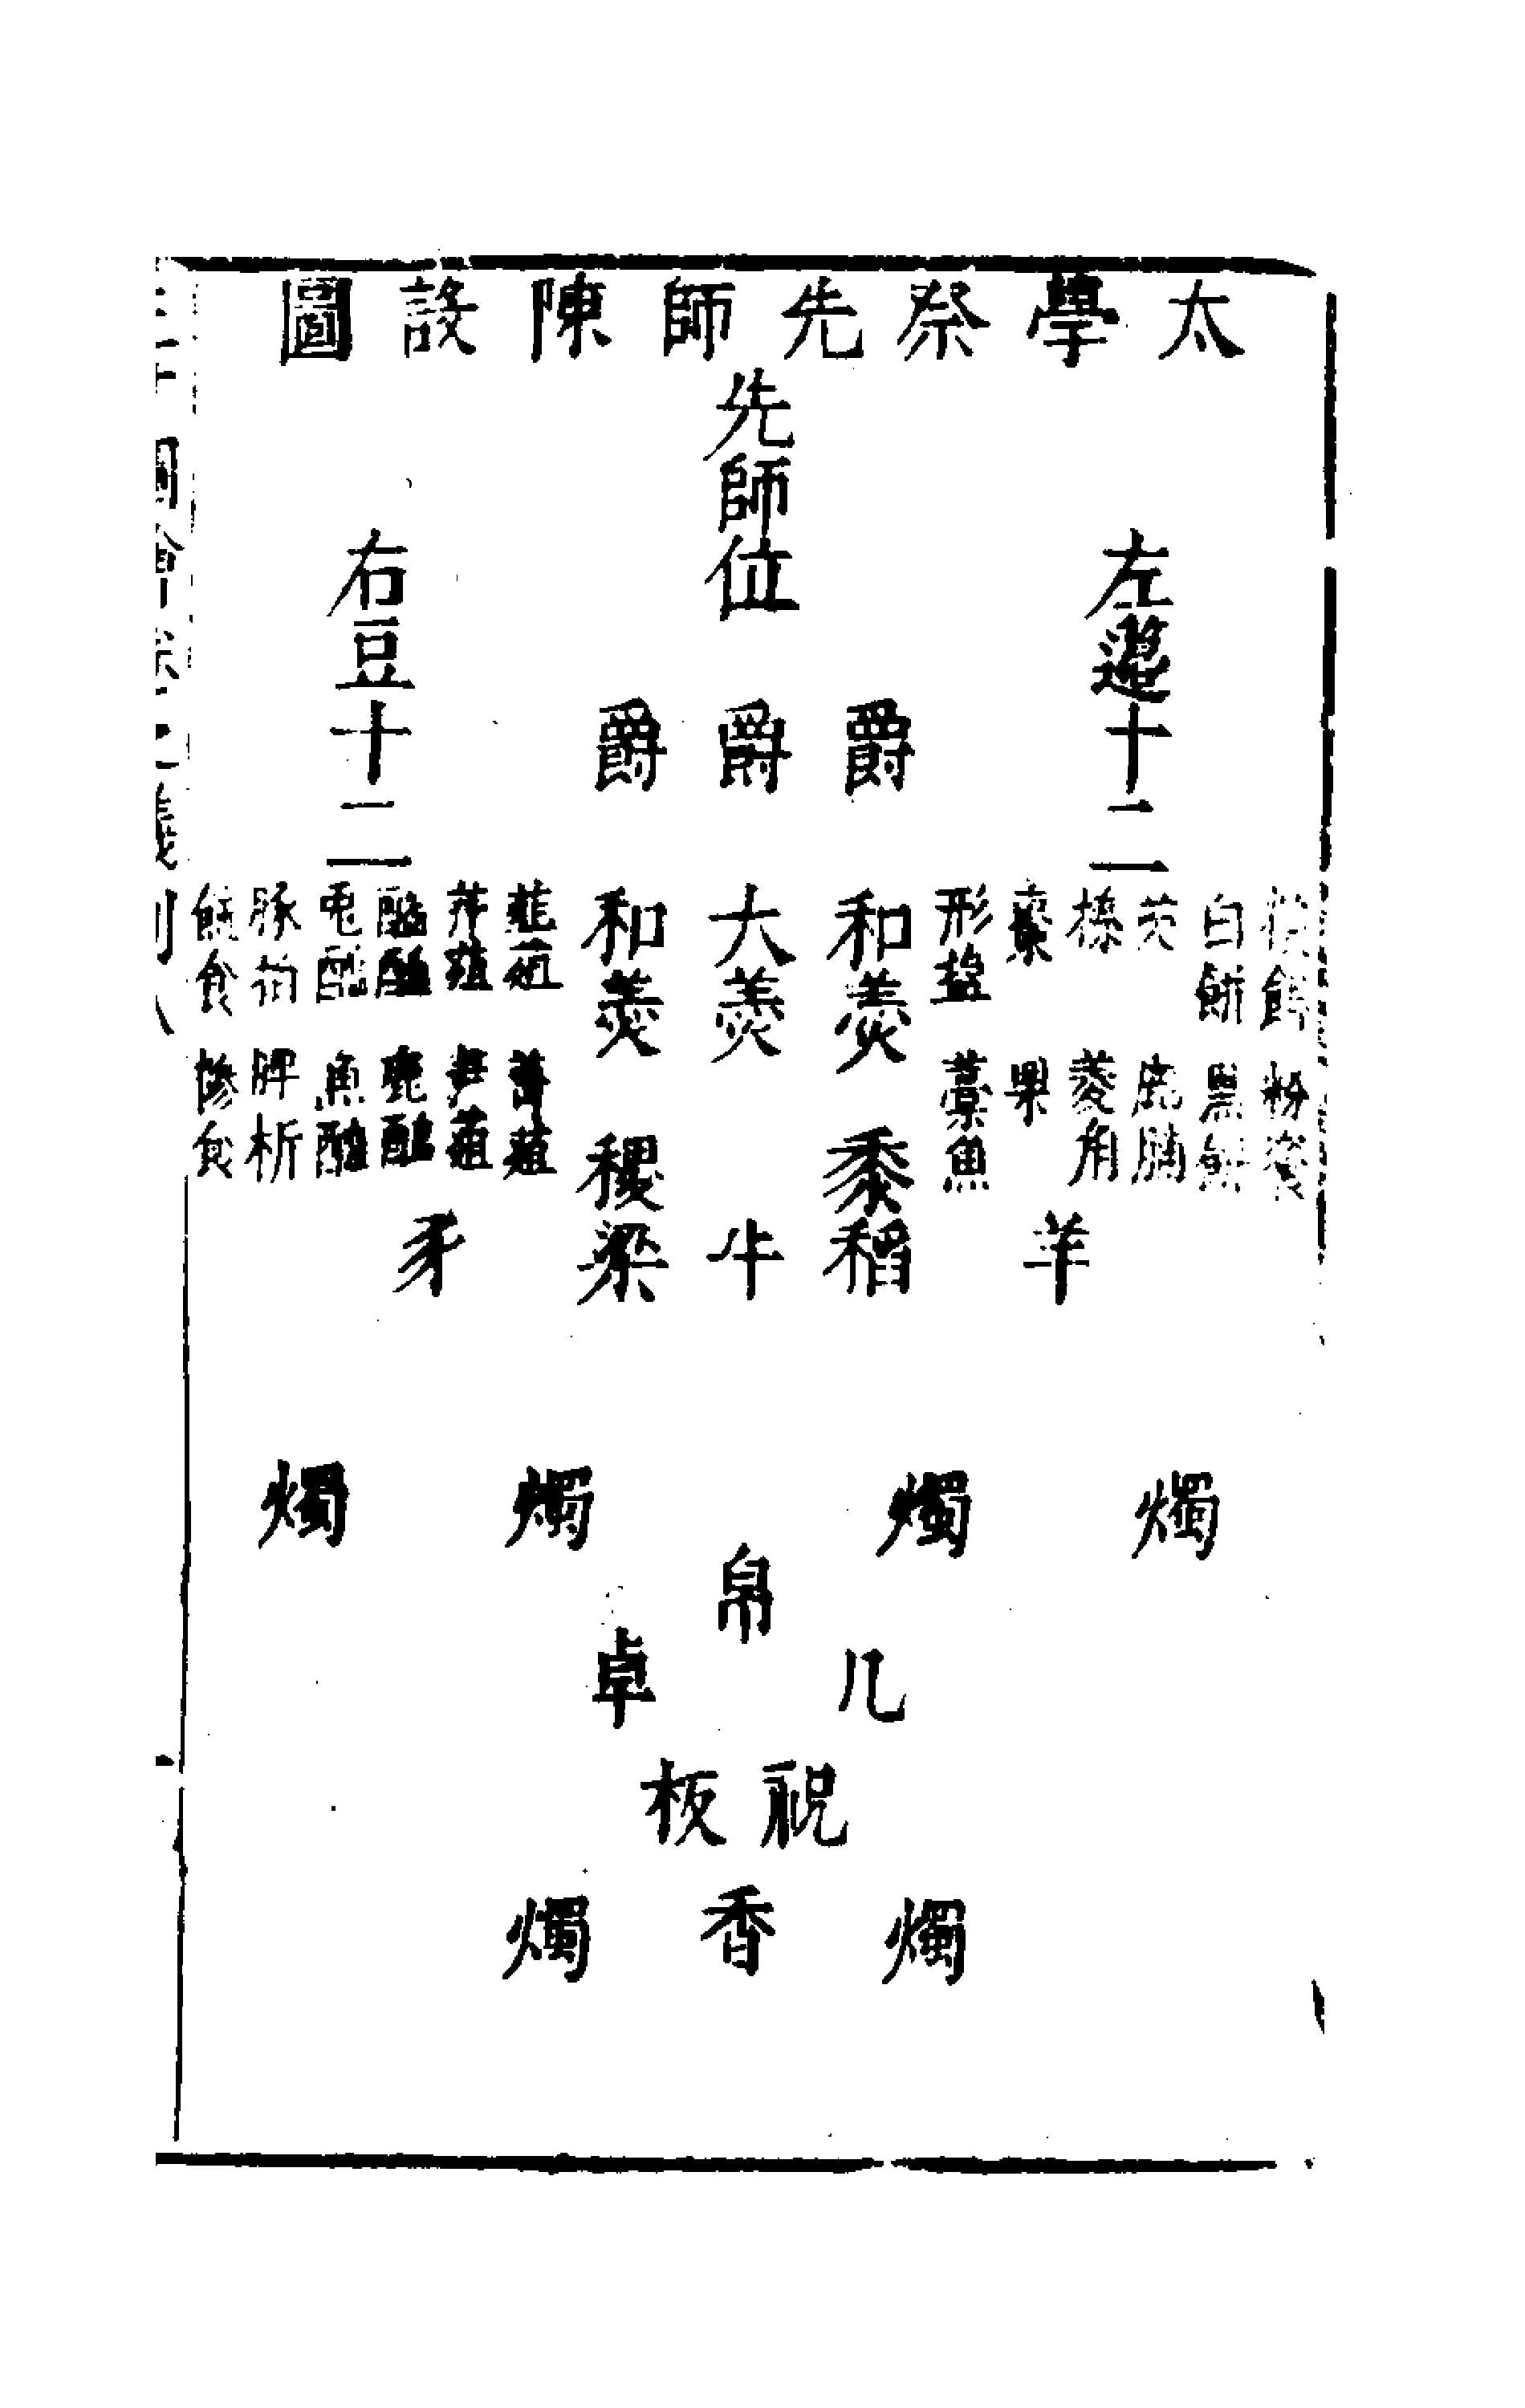 太學祭先師陳設圖
先師位
左籩十二
右豆十二
爵 爵 爵
形鹽 藁魚
棗 果
榛 菱角
芡 鹿脯
白餅 黑餅
糗餌 粉餈
和羹 黍稻
大羹 牛
和羹 稷梁
韭菹 菁菹
芹菹 笋菹
醓醢 鹿醢
兎醢 魚醢
豚拍 脾析
食 糝食
羊
豕
燭 燭 燭 燭
帛
几 卓
祝板
燭 香 燭